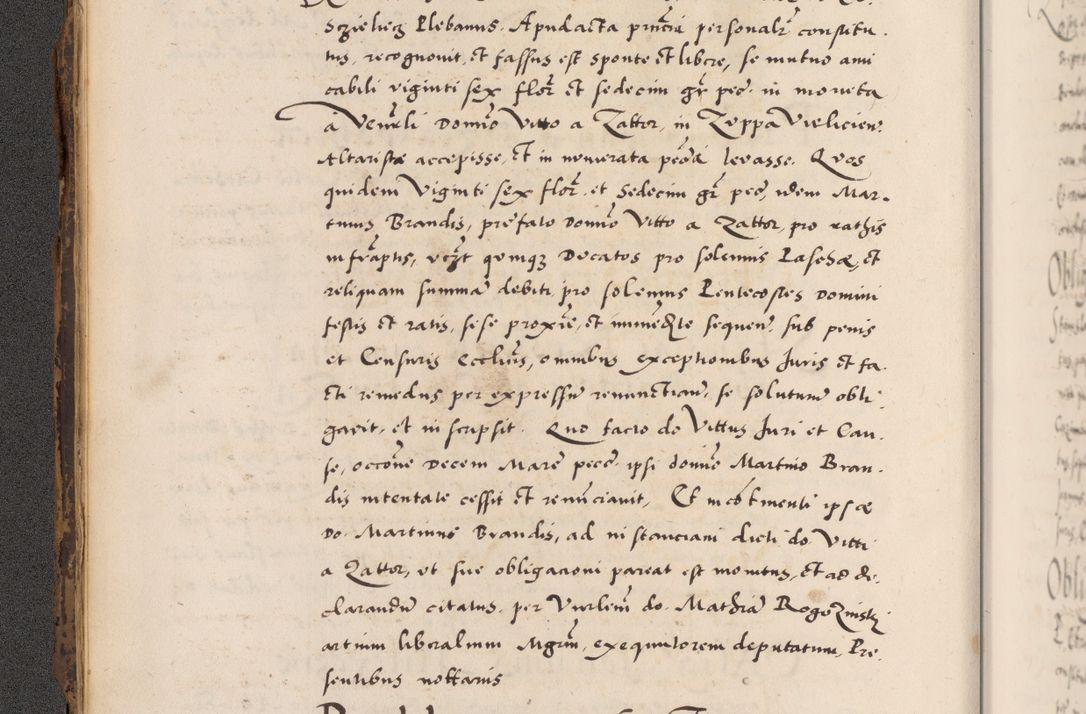 Szielieg Plebanus. Apud acta prncia personalr constitu.
tus, recognouit, et fassus est sponte et libere, se mutuo ami
cabili viginti sex flor et sedecim gr pec. in moneta
a Venrli Domno Vitto a Zattor, in Zuppa Vielicien
Altarista accepisse, et in numerata pecoa leuasse. Quos
quidem Viginti sex flor. et Sedecim gr pec, idem Mar-
tinus Brandis, prefato Domno Vitto a Zattor, pro rathis
infraptis, vczt quinqz Ducatos pro solemnis Paschæ, et
reliquam summa debiti pro solemnis Pentecostes Domini
festis et ratis, sese proxie, et immedte sequen, sub penis
et Censuris Ecclius, omnibus exceptionibus Juris et fa.
cti remedus per expressu renunctian, se soluturum obli.
gauit, et inscripsit. Quo facto do Vittus Juri et Cau.
se, occone Decem Mare pece. ipsi domno Martino Bran.
dis intentate cessit et renunciauit. Et incontinenti ipse
Do. Martinus Brandis, ad instanciam dicti do Vitti
a Zattor, vt sue obligacioni pareat est monitus, et ad de.
clarandu citatus. per Vnrlem do. Mathia Rogozinski
artium liberalium Mgrm, exequutorem deputatum, Pre.
sentibus nottariis